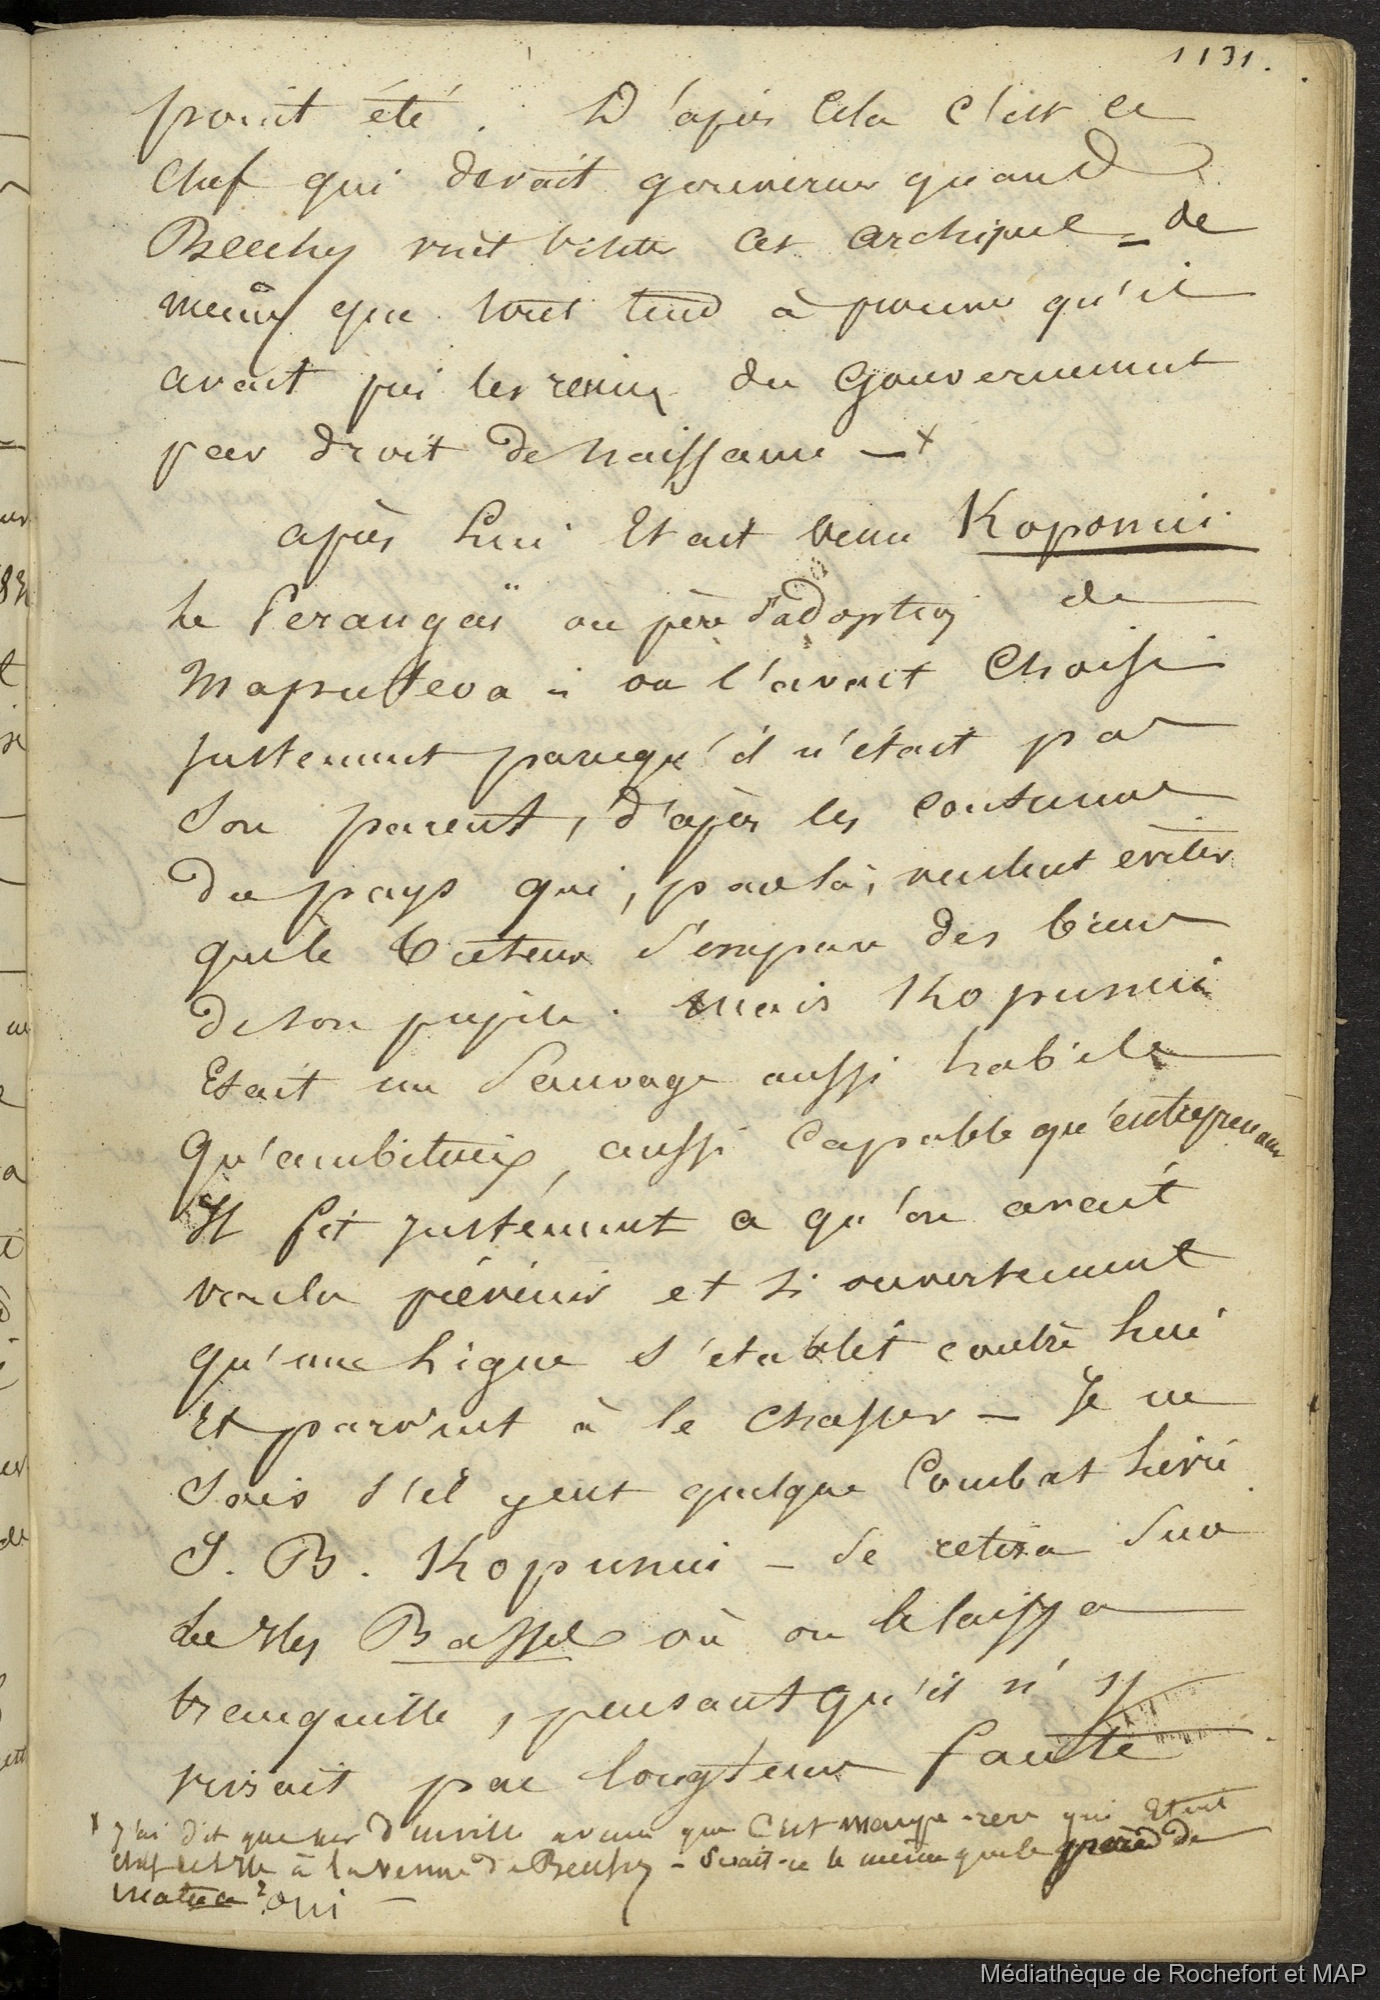 1131.
point été. D'après Cela C'est ce
Chef qui devait gouverner quand
Beechy vint visiter cet archipel = de
même que tout tend à prouver qu'il
avait pris les renes du Gouvernement
par droit de naissance — x
après lui Etait venu Koponui
le Perangaï ou père d'adoption de
Maputeva = on l'avait Choisi
justement parcequ'il n'était pas
Son parent, d'après les coutumes
du pays qui, par là, veulent eviter
que le tuteur S'empare des biens
de son pupile. Mais Kopunui
Etait un Sauvage aussi habile
qu'ambitieux, aussi Capable qu'entreprenant
Il fit justement ce qu'on avait
voulu prévenir et si ouvertement
qu'une Ligue s'etablit contre lui
Et parvint à le Chasser — Je ne
Sais s'il y eut quelque Combat livré
S. B. Kopunui — Se retira Sur
les Iles Basses où on le laissa
tranquille, pensant qu'il n'y
vivrait pas longtems faute
x j'ai dit que avec d'urville que C'est qui Etait
chef de l'Ile à la venue de Beechy — Serait-ce le même que le père de
Matua? oui —
Médiathèque de Rochefort et MAP